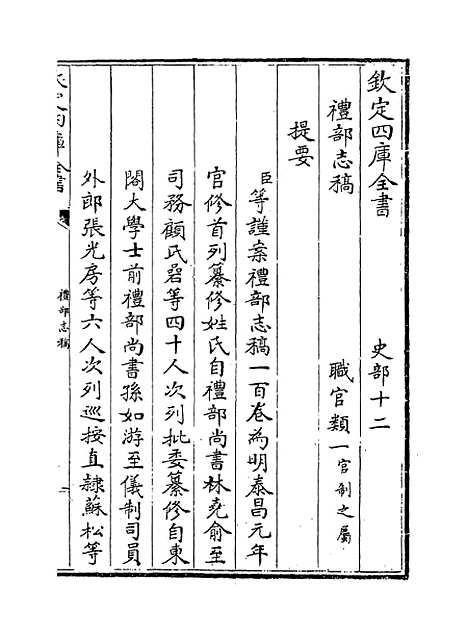 欽定四庫全書　史部十二
禮部志稿　職官類一官制之屬
提要
臣等謹案禮部志稿一百卷為明泰昌元年
官修首列纂修姓氏自禮部尚書林堯俞至
司務顧民碞等四十人次列批委纂修自東
閣大學士前禮部尚書孫如游至儀制司員
外郎張光房等六人次列巡按直隸蘇松等
欽定四庫全書
禮部志稿
一